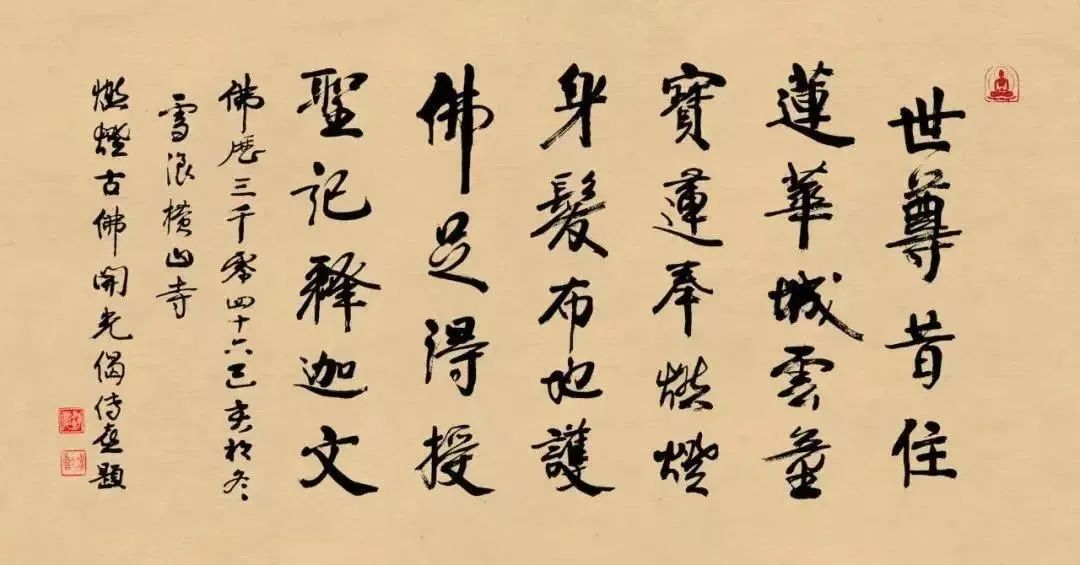 世尊昔住
蓮華城雲童
寶蓮奉燃燈
身髮布地護
佛足得授
聖記釋迦文
佛曆三千零四十六己亥初冬
雪浪橫山寺
燃燈古佛開光偈傳喜題